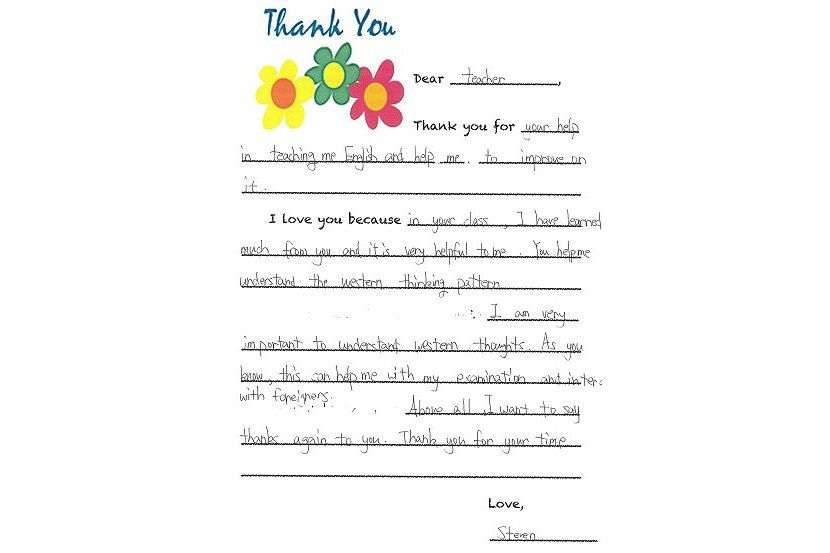 Thank You
Dear teacher,
Thank you for your help
in teaching me English and help me. to improve on
it.
I love you because in your class, I have learned
much from you and it is very helpful to me. You help me
understand the western thinking pattern
I am very
important to understand western thoughts. As you
know, this can help me with my examination and inter
with foreigners.
Above all, I want to say
thanks again to you. Thank you for your time
Love,
Steven